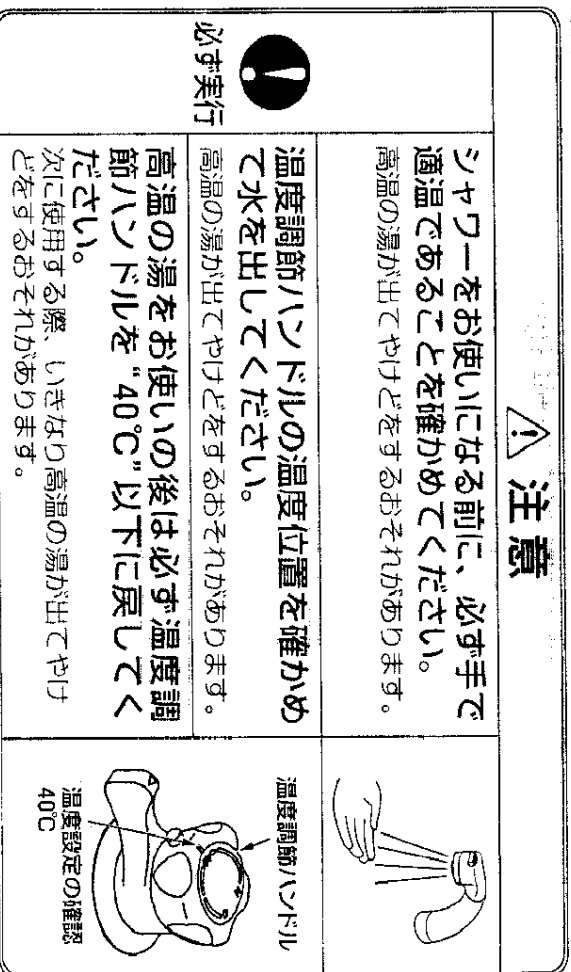 注意
必ず実行
シャワーをお使いになる前に、必ず手で
適温であることを確かめてください。
高温の湯が出てやけどをするおそれがあります。
温度調節ハンドルの温度位置を確かめ
て水を出してください。
高温の湯が出てやけどをするおそれがあります。
高温の湯をお使いの後は必ず温度調
節ハンドルを“40℃”以下に戻してく
ださい。
次に使用する際、いきなり高温の湯が出てやけ
どをするおそれがあります。
温度調節ハンドル
温度設定の確認
40℃